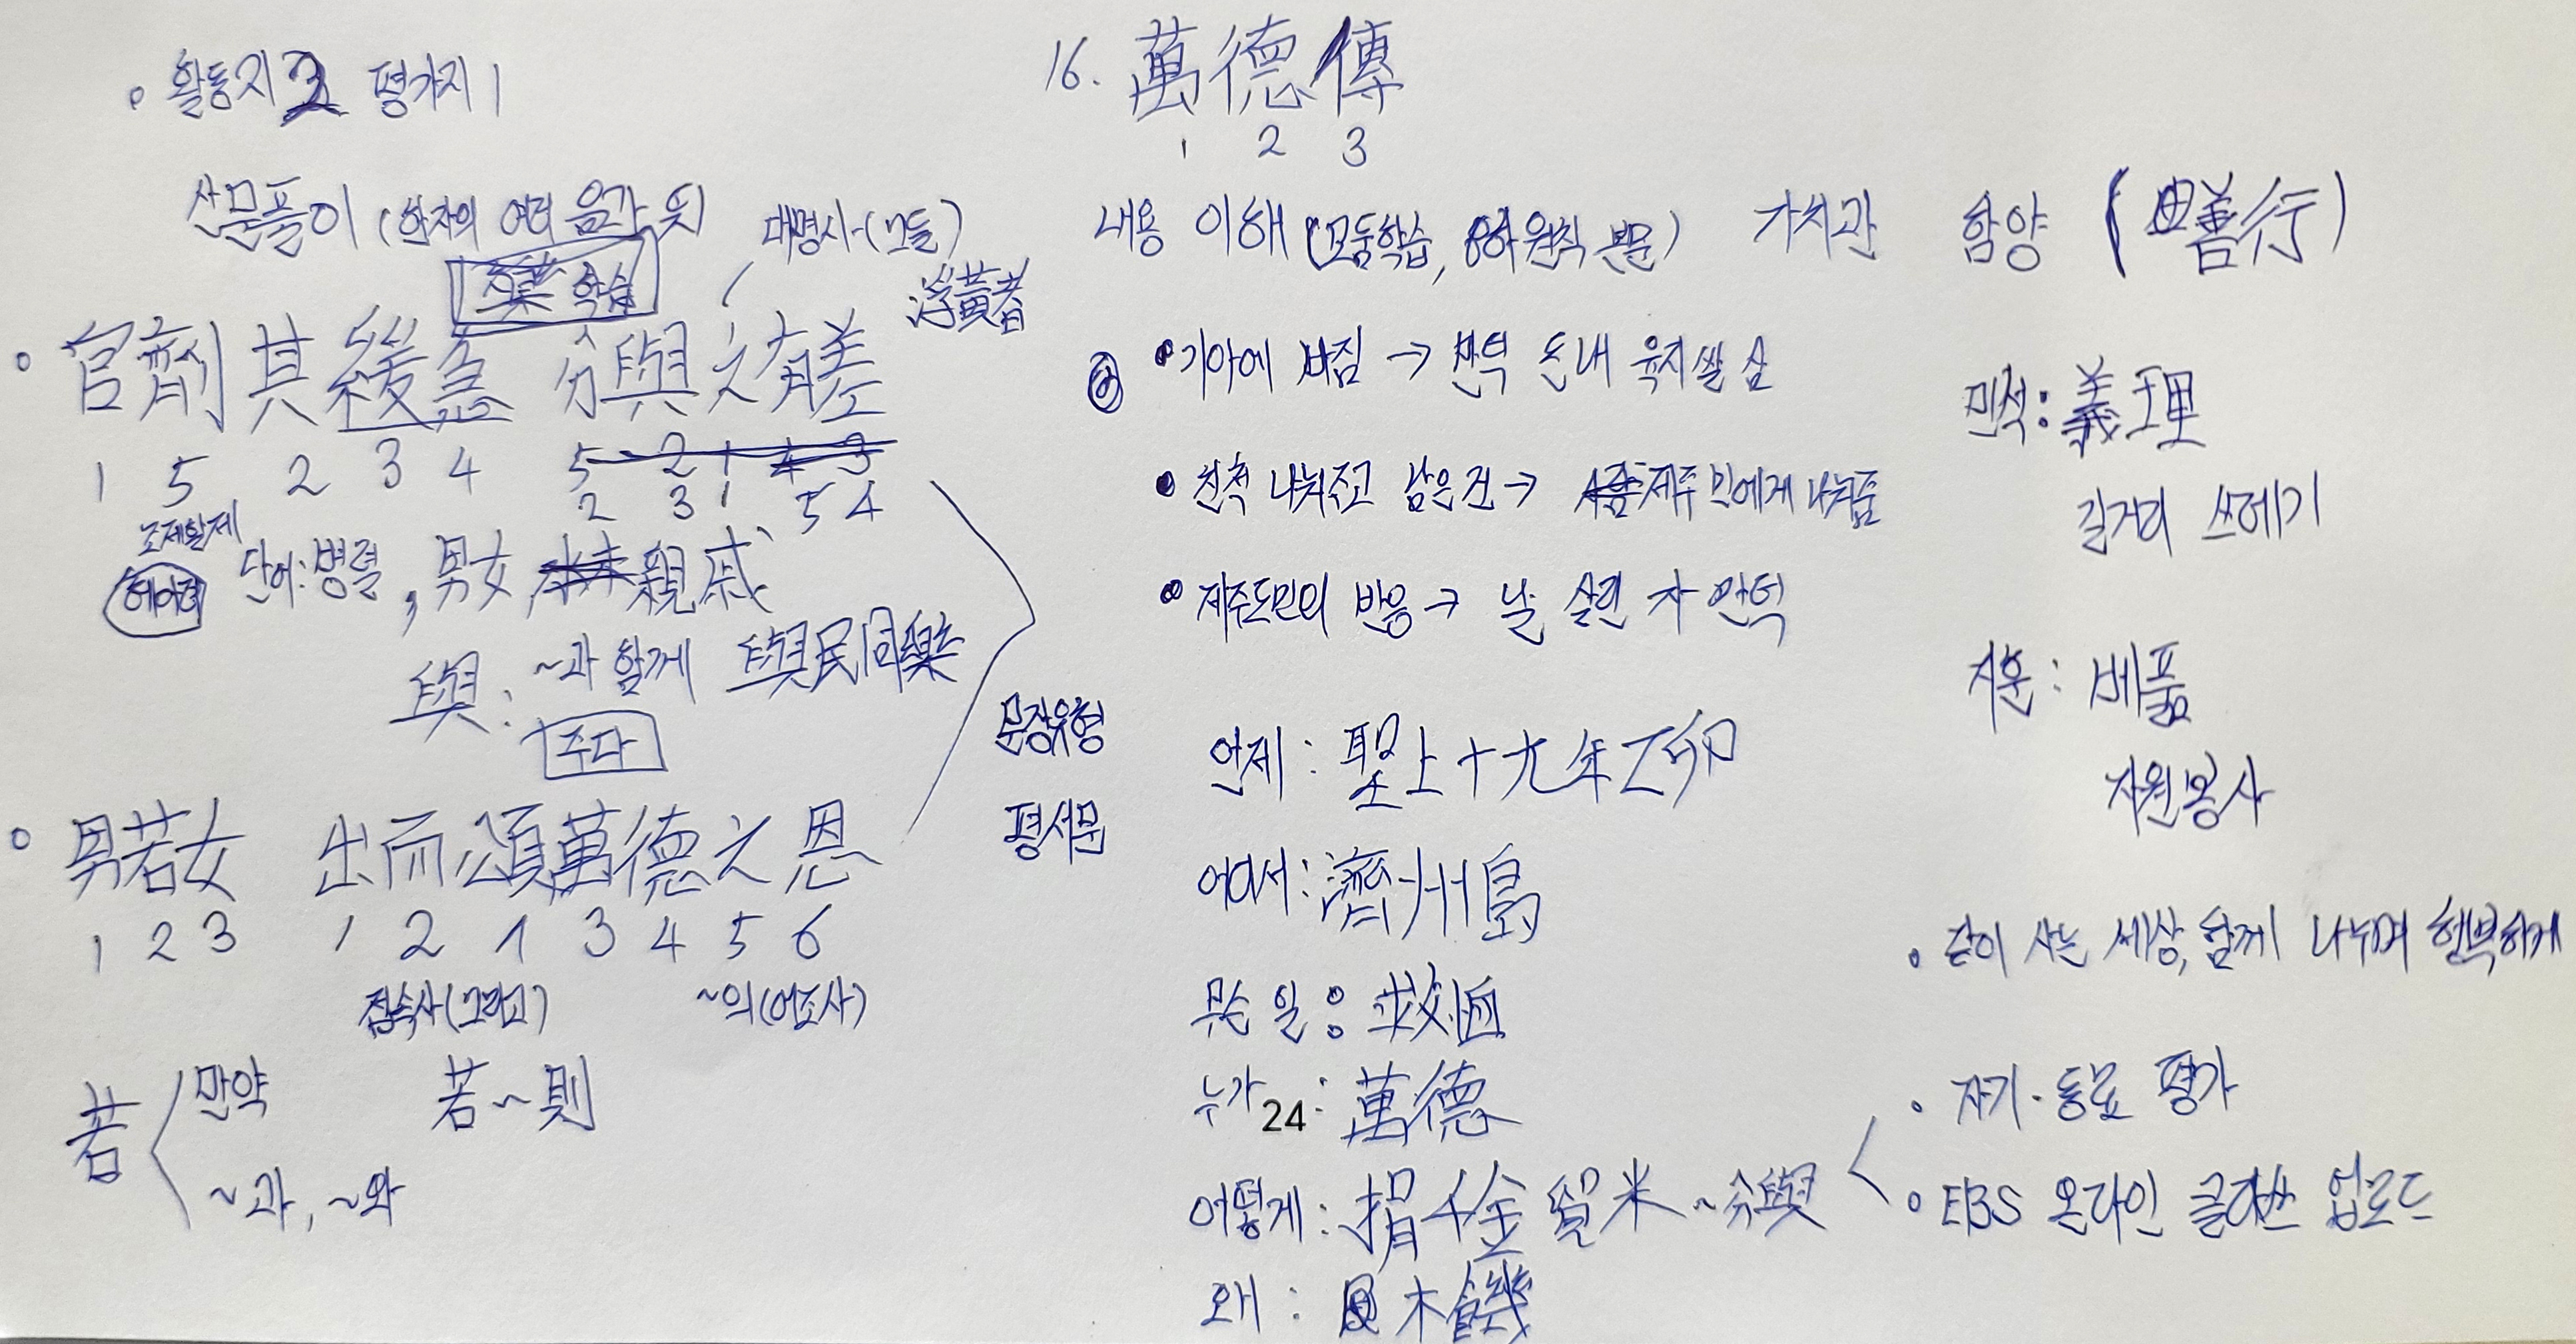 16. 萬德傳
1 2 3
• 활동지 3 평가지 1
산문풀이 (한자의 여러 음과 뜻)
학습
대명사(그들)
浮黃者
官劑其緩急 分與之有差
1 5 2 3 4 5 2 1 4 3
2 3 1 5 4
조제할 제
헤아려
단어:병렬, 男女 親戚
與: ~과 함께 與民同樂
주다
문장유형
평서문
男若女 出而頌萬德之恩
1 2 3 1 2 1 3 4 5 6
접속사(그리고) ~의(어조사)
若
만약 若~則
~과, ~와
내용 이해 (모둠학습, 원칙 본문)
• 기아에 빠짐 → 만덕 돈내 육지쌀 삼
• 친척 나눠주고 남은건 → 제주민에게 나눠줌
• 제주도민의 반응 → 날 살린 자 만덕
언제: 聖上十九年乙卯
어디서: 濟州島
무슨 일: 救恤
누가: 萬德
24
어떻게: 捐千金 貿米 ~分與
왜: 大饑
가치관 함양 (善行)
민석: 義理
길거리 쓰레기
지훈: 베풂
자원봉사
• 같이 사는 세상, 함께 나누며 행복하게
• 자기·동료 평가
• EBS 온라인 클래스 업로드